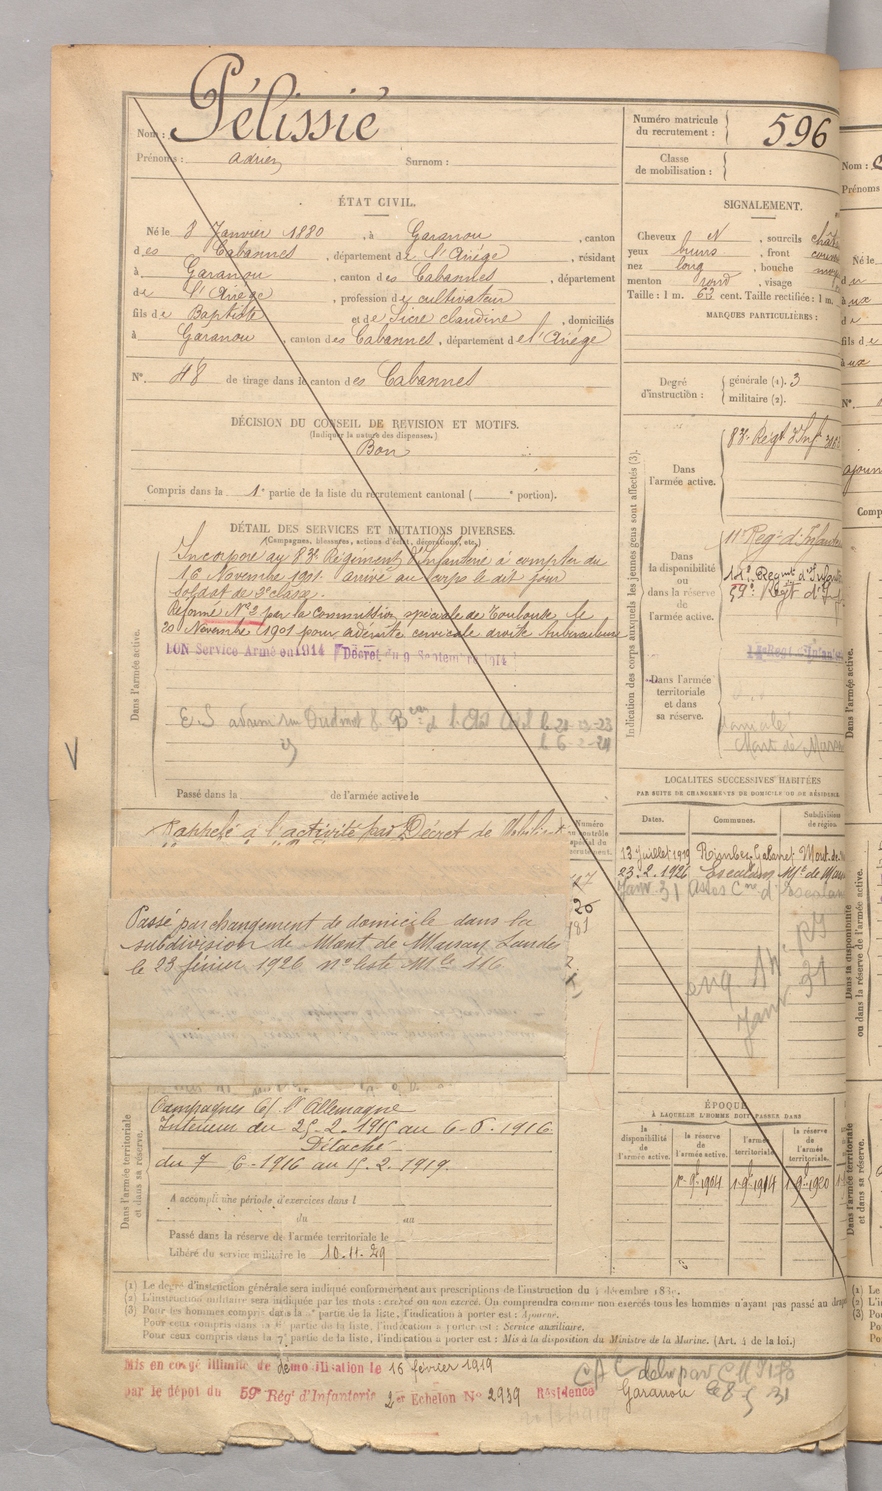 Nom : Pélissié
Prénoms : Adrien Surnom :
ÉTAT CIVIL.
Né le 8 Janvier 1880, à Garanou, canton
des Cabannes, département de l'Ariége, résidant
à Garanou, canton des Cabannes, département
de l'Ariége, profession de cultivateur
fils de Baptiste et de Sicre claudine, domiciliés
à Garanou, canton des Cabannes, département de l'Ariége
N°. 48 de tirage dans le canton des Cabannes
DÉCISION DU CONSEIL DE RÉVISION ET MOTIFS.
(Indiquer la nature des dispenses.)
Bon
Compris dans la 1e partie de la liste du recrutement cantonal ( e portion).
DÉTAIL DES SERVICES ET MUTATIONS DIVERSES.
(Campagnes, blessures, actions d'éclat, décorations, etc.)
Dans l'armée active.
Incorporé au 83e Régiment d'Infanterie à compter du
16 Novembre 1901. arrivé au corps le dit jour
soldat de 2e classe.
Réformé N°2 par la commission spéciale de Toulouse le
20 Novembre 1901 pour adénite cervicale droite tuberculeuse
BON Service Armé en 1914 Décret du 9 Septembre 1914
Passé dans la de l'armée active le
Rappelé à l'activité par Décret de
Passé par changement de domicile dans la
subdivision de Mont de Marsan Landes
le 23 février 1926 n° liste Mle 116
Dans l'armée territoriale et dans sa réserve.
Campagnes C/ l'Allemagne
Intérieur du 25-2-1915 au 6-6-1916
Détaché
du 7-6-1916 au 15-2-1919.
A accompli une période d'exercices dans l
du au
Passé dans la réserve de l'armée territoriale le
Libéré du service militaire le 10.11.29
Numéro matricule du recrutement : 596
Classe de mobilisation :
SIGNALEMENT.
Cheveux N, sourcils chât
yeux bruns, front
nez long, bouche moy
menton rond, visage
Taille : 1 m. 63 cent. Taille rectifiée : 1 m.
MARQUES PARTICULIÈRES :
Degré d'instruction :
générale (1). 3
militaire (2).
Indication des corps auxquels les jeunes gens sont affectés (3).
Dans l'armée active.
83e Régt d'Inf
Dans la disponibilité ou dans la réserve de l'armée active.
11e Régt d'Infanterie
14e Régiment d'Infant
59e Régt d'Inf
Dans l'armée territoriale et dans sa réserve.
Mont de Marsan
LOCALITÉS SUCCESSIVES HABITÉES
PAR SUITE DE CHANGEMENTS DE DOMICILE OU DE RÉSIDENCE
Dates. Communes. Subdivision de région.
13 Juillet 1919 Rimbez Gabaret Mont de
23.2.1926 Escalans Mt de Mars
Janv 31
Janv 31
ÉPOQUE
À LAQUELLE L'HOMME DOIT PASSER DANS
la disponibilité de l'armée active. la réserve de l'armée active. l'armée territoriale. la réserve de l'armée territoriale.
1-9-1904 1-9-1914 1-9-1920
(1) Le degré d'instruction générale sera indiqué conformément aux prescriptions de l'instruction du 4 décembre 1889.
(2) L'instruction militaire sera indiquée par les mots : exercé ou non exercé. On comprendra comme non exercés tous les hommes n'ayant pas passé au drap
(3) Pour les hommes compris dans la partie de la liste, l'indication à porter est : Ajourné.
Pour ceux compris dans la 6e partie de la liste, l'indication à porter est : Service auxiliaire.
Pour ceux compris dans la 7e partie de la liste, l'indication à porter est : Mis à la disposition du Ministre de la Marine. (Art. 4 de la loi.)
Mis en congé illimité de démobilisation le 16 février 1919
par le dépôt du 59e Régt d'Infanterie 2e Echelon N° 2939 Résidence Garanou